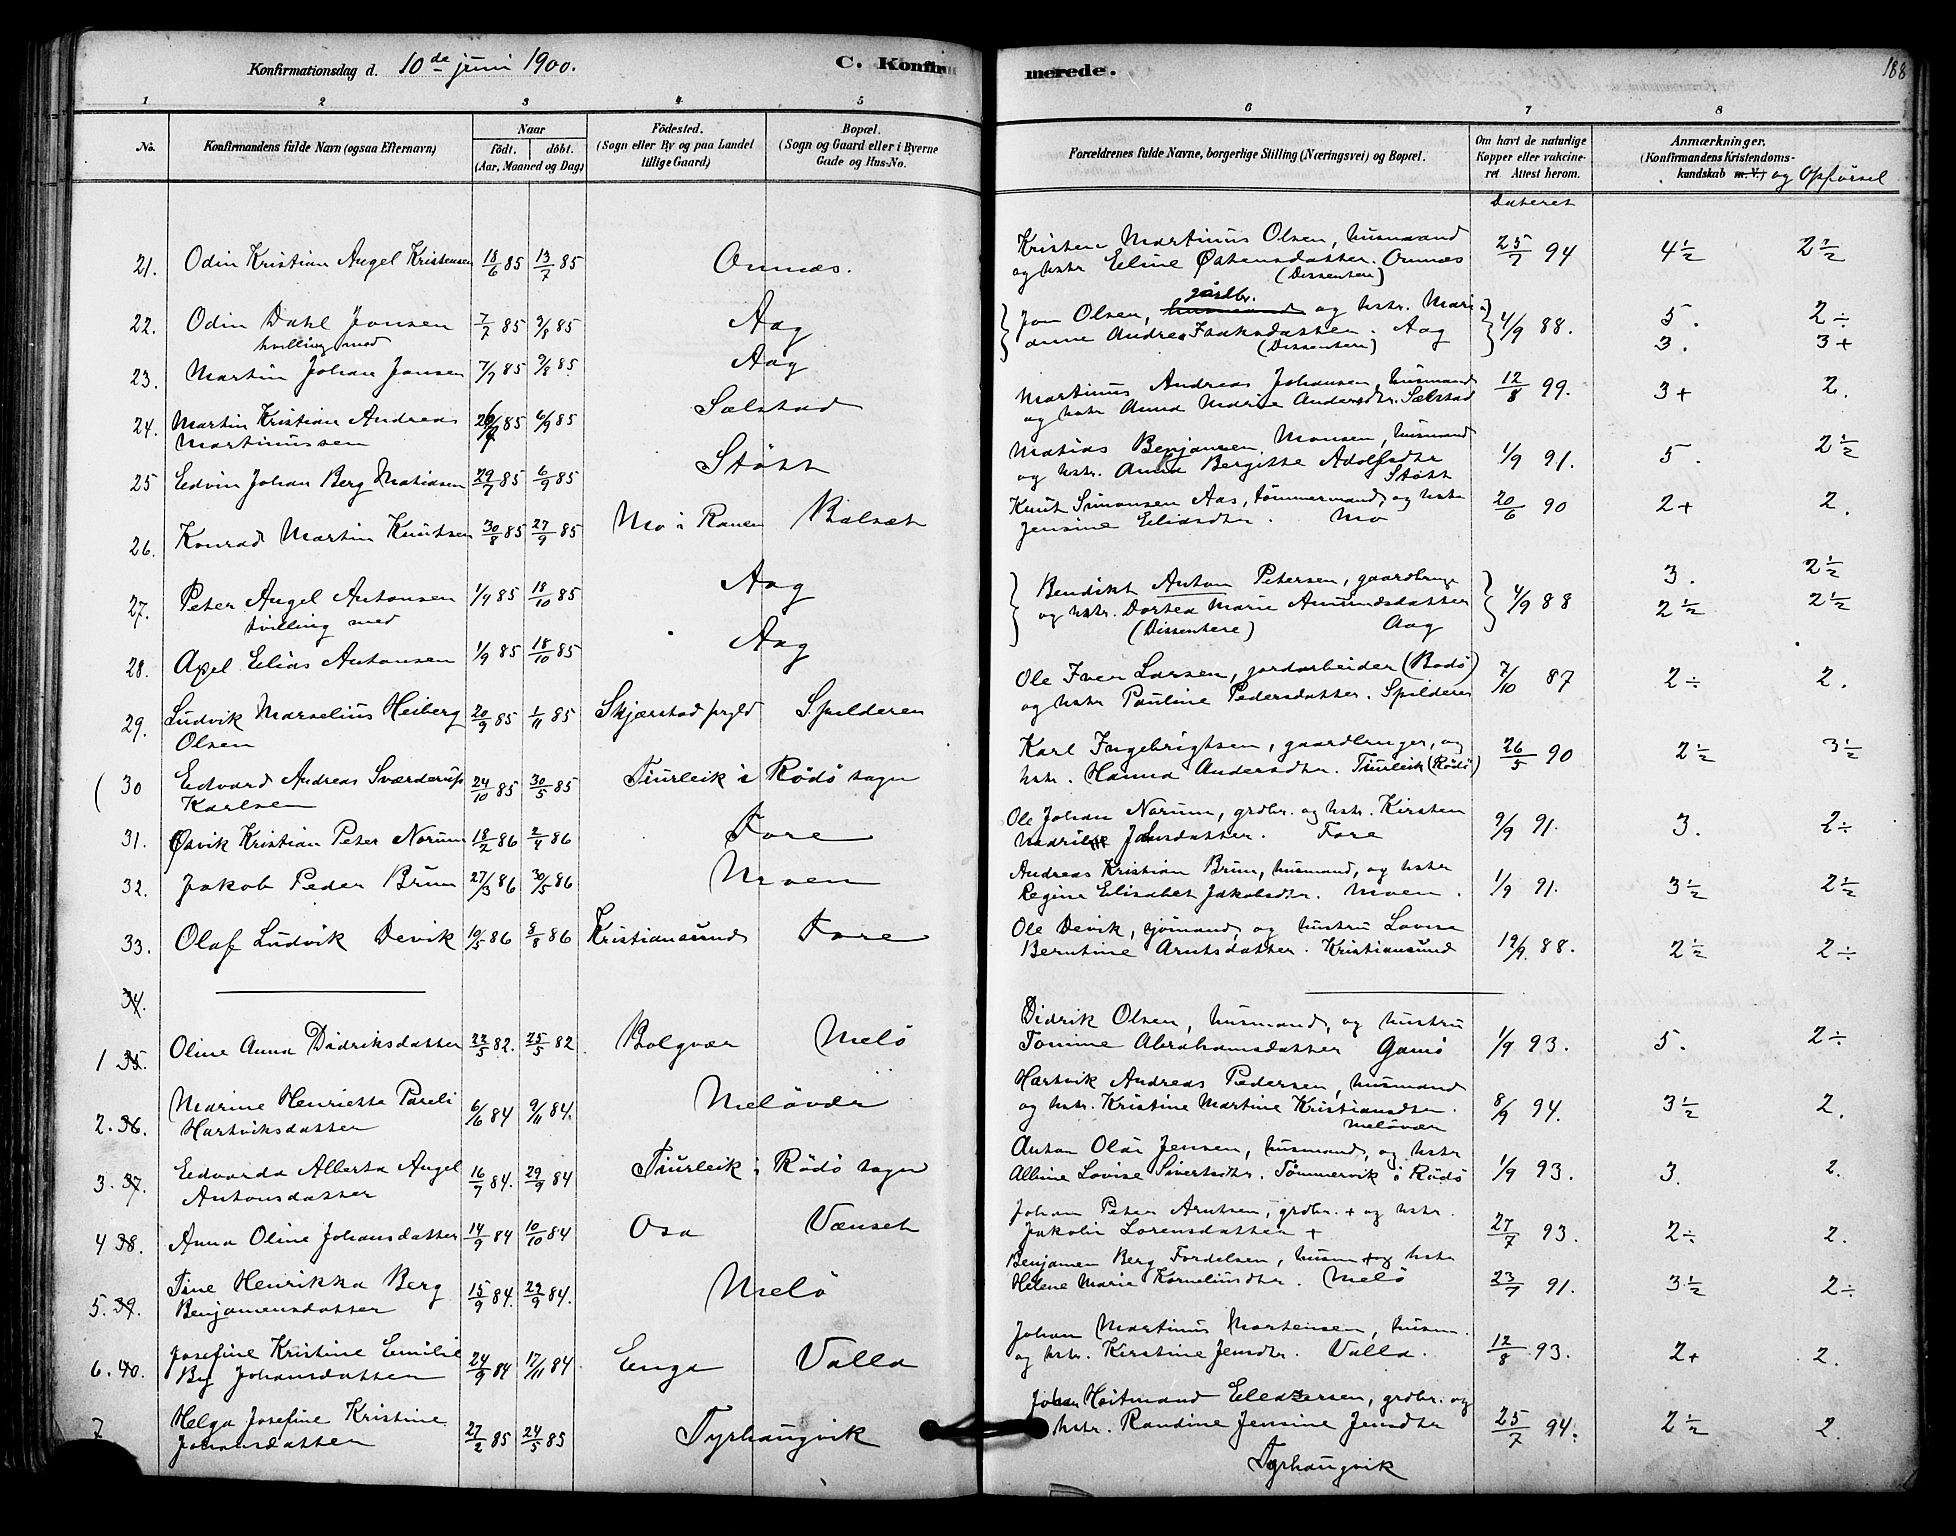 Konfirmationsdag d. 10de juni 1900.
C. Konfir
1 2 3 4 5
No.
Konfirmandens fulde Navn (ogsaa Efternavn)
Naar
födt. döbt.
(Aar, Maaned og Dag)
Födested.
(Sogn eller By og paa Landet
tillige Gaard)
Bopæl.
(Sogn og Gaard eller i Byerne
Gade og Hus-No.
21. Odin Kristian Angel Kristensen 18/6 85 13/7 85 Onnæs.
22. Odin Dahl Jonsen 7/7 85 9/8 85 Aag
tvilling med
23. Martin Johan Jonsen 7/7 85 9/8 85 Aag
24. Martin Kristian Andreas 85 6/9 85 Sælstad
Martinussen
25 Edvin Johan Berg Matiasen 29/7 85 6/9 85 Støtt
26. Konrad Martin Knutsen 30/8 85 27/9 85 Mo i Ranen Bolsæt
27. Peter Angel Antonsen 1/9 85 18/10 85 Aag
tvilling med
28. Axel Elias Antonsen 1/9 85 18/10 85 Aag
29. Ludvik Marselius Heiberg 20/9 85 1/11 85 Skjærstad prgld Spilderen
Olsen
30 Edvard Andreas Sværdrup 24/10 85 30/5 85 Tjurleik i Rødø sogn
Karlsen
31. Østvik Kristian Peter Norum 18/2 86 2/4 86 Fore
32. Jakob Peder Brun 27/3 86 30/5 86 Moen
33. Olaf Ludvik Devik 10/5 86 8/8 86 Kristiansund Fore
34.
1 35. Oline Anna Didriksdatter 22/5 82. 25/5 82 Bolgvær Melø
2. 36. Marine Henriette Pareli 6/6 84 9/11 84. Meløvær
Hartviksdatter
3. 37. Edvarda Alberta Angel 16/7 84. 29/9 84 Tjurleik i Rødø sogn
Antonsdatter
4 38. Anna Oline Johansdatter 14/9 84 10/10 84 Osa Vænset
5. 39. Tine Henrikka Berg 15/9 84. 22/9 84. Melø
Benjamensdatter
6. 40. Josefine Kristine Emilie 24/9 84 17/11 84 Enga Valla
By Johansdatter
7 Helga Josefine Kristine 27/2 85 24/5 85 Tyrhaugvik
Johansdatter
merede.
188
6 7 8
Forældrenes fulde Navne, borgerlige Stilling (Næringsvei) og Bopæl.
Om havt de naturlige
Kopper eller vakcine-
ret Attest herom.
Anmærkninger.
(Konfirmandens Kristendoms-
kundskab m. V.) og Opførsel
Dateret
Kristen Martinus Olsen, husmand 25/7 94 4½ 2½
og hstr Eline Østensdatter. Onnæs
(Dissentere)
gårdbr.
Jon Olsen, husmand og hstr. Mari 4/9 88. 5. 2÷
anne Andrea Isaksdatter. Aag 3. 3+
(Dissentere)
Martinus Andreas Johansen, husmand 12/8 99. 3+ 2.
og hstr Anna Marie Andersdtr. Sælstad
Matias Benjamsen Monsen, husmand 1/9 91. 5. 2½
og hstr. Anna Bergitte Adolfsdtr
Støtt
Knut Simonsen Aas, tømmermand, og hstr 20/6 90 2+ 2.
Jensine Eliasdtr. Mo
Bendikt Anton Petersen, gaardbruge 4/9 88 3. 2½
og hstr. Dortea Marie Amundsdatter 2½ 2½
(Dissentere) Aag
Ole Iver Larsen, jordarbeider (Bodø) 7/10 87 2÷ 2.
og hstr Pauline Pedersdatter. Spilderen
Karl Ingebrigtsen, gaardbruger, og 26/5 90 2½ 3½
hstr. Hanna Andersdtr. Tjurleik (Rødø)
Ole Johan Norum, grdbr. og hstr. Kirsten 9/9 91. 3. 2÷
Jensdatter. Fore
Andreas Kristian Brun, husmand, og hstr 1/9 91. 3½ 2½
Regine Elisabet Jakobsdtr. Moen.
Ole Devik, sjømand, og hustru Lovise 12/9. 88. 2½ 2÷
Berntine Arntsdatter. Kristiansund
Didrik Olsen, husmand, og hustru 1/9 93. 5. 2÷
Tomine Abrahamsdatter Gamø
Hartvik Andreas Pedersen, husmand 8/9 94. 3½ 2.
og hstr. Kristine Martine Kristiansdtr.
Meløvær
Anton Olai Jensen, husmand, og hstr 1/9 93. 3. 2.
Albine Lovise Sivertsdtr. Tømmervik i Rødø
Johan Peter Arntsen, grdbr. + og hstr. 27/7 93. 2÷ 2.
Jakobin Lorensdatter +
Benjamen Berg Fordelsen, husm + og hstr 23/7 91. 3½ 2÷
Helene Marie Korneliusdtr. Melø
Johan Martinus Mortensen, husm. 12/8 93. 2+ 2.
og hstr. Kirstine Jensdtr. Valla.
Johan Heitmand Eleazersen, grdbr. og 25/7 94. 2½ 2.
hstr. Randine Jensine Jensdtr
Tyrhaugvik